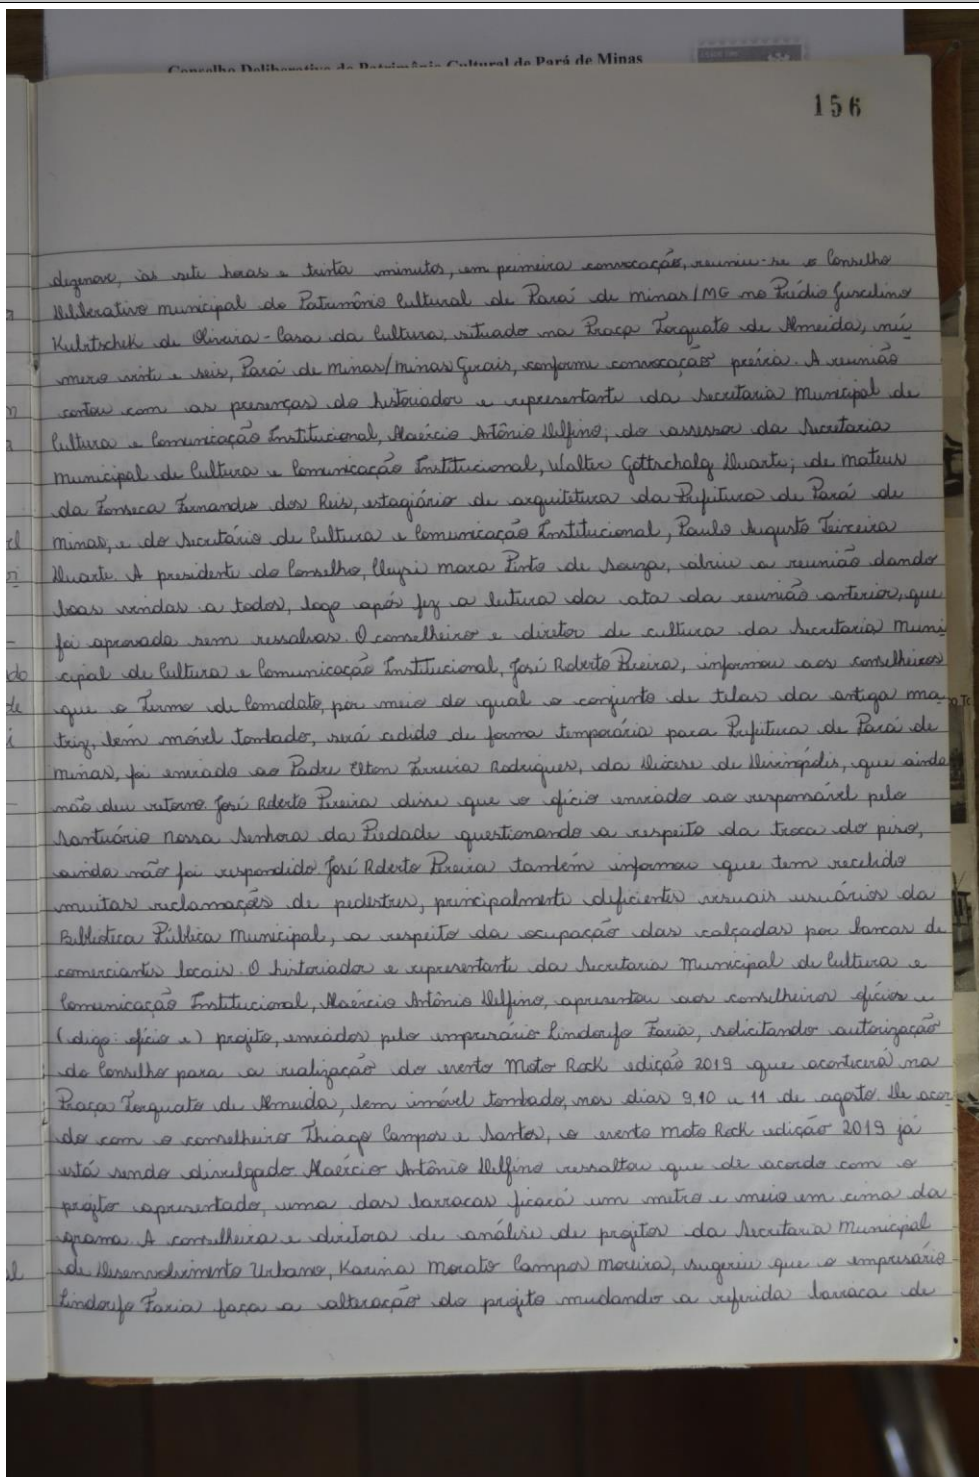 Conselho Deliberativo do Patrimônio Cultural de Pará de Minas
156
dezenove, às sete horas e trinta minutos, em primeira convocação, reuniu-se o Conselho
Deliberativo Municipal do Patrimônio Cultural de Pará de Minas/MG no Prédio Juscelino
Kubitschek de Oliveira - Casa da Cultura, situado na Praça Torquato de Almeida, nú
mero vinte e seis, Pará de Minas/Minas Gerais, conforme convocação prévia. A reunião
contou com as presenças do historiador e representante da Secretaria Municipal de
Cultura e Comunicação Institucional, Alaércio Antônio Delfino; do assessor da Secretaria
Municipal de Cultura e Comunicação Institucional, Walter Gottschalg Duarte; de Mateus
da Fonseca Fernandes dos Reis, estagiário de arquitetura da Prefeitura de Pará de
Minas, e do Secretário de Cultura e Comunicação Institucional, Paulo Augusto Teixeira
Duarte. A presidente do Conselho, Cleysi Mara Pinto de Souza, abriu a reunião dando
boas vindas a todos, logo após fez a leitura da ata da reunião anterior, que
foi aprovada sem ressalvas. O conselheiro e diretor de cultura da Secretaria Muni
cipal de Cultura e Comunicação Institucional, José Roberto Pereira, informou aos conselheiros
que o Termo de Comodato, por meio do qual o conjunto de telas da antiga ma
triz, bem móvel tombado, será cedido de forma temporária para Prefeitura de Pará de
Minas, foi enviado ao Padre Elton Ferreira Rodrigues, da Diocese de Divinópolis, que ainda
não deu retorno. José Roberto Pereira disse que o ofício enviado ao responsável pelo
Santuário Nossa Senhora da Piedade questionando a respeito da troca do piso,
ainda não foi respondido. José Roberto Pereira também informou que tem recebido
muitas reclamações de pedestres, principalmente deficientes visuais usuários da
Biblioteca Pública Municipal, a respeito da ocupação das calçadas por bancas de
comerciantes locais. O historiador e representante da Secretaria Municipal de Cultura e
Comunicação Institucional, Alaércio Antônio Delfino, apresentou aos conselheiros ofícios e
(digo: ofício e) projeto, enviados pelo empresário Lindorfo Faria, solicitando autorização
do Conselho para a realização do evento Moto Rock edição 2019 que acontecerá na
Praça Torquato de Almeida, bem imóvel tombado, nos dias 9, 10 e 11 de agosto. De acor
do com o conselheiro Thiago Campos e Santos, o evento Moto Rock edição 2019 já
está sendo divulgado. Alaércio Antônio Delfino ressaltou que de acordo com o
projeto apresentado, uma das barracas ficará um metro e meio em cima da
grama. A conselheira e diretora de análise de projetos da Secretaria Municipal
de Desenvolvimento Urbano, Karina Morato Campos Moreira, sugeriu que o empresário
Lindorfo Faria faça a alteração do projeto mudando a referida barraca de